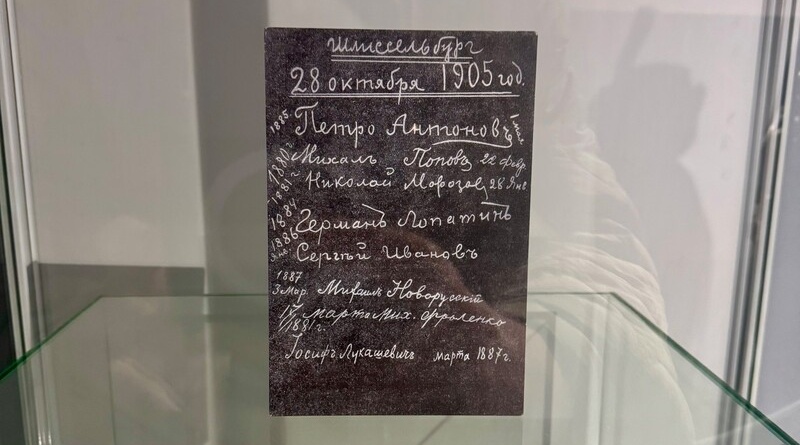 Шлиссельбург
28 октября 1905 год.
1885. Петро Антоновъ 1 мая
1880 г Михаль Поповъ 22 февр.
1881 г Николай Морозов 28 Янв
1884 Германъ Лопатинъ
1886 Янв. Сергѣй Ивановъ
1887
3 Мар. Михаилъ Новорусскій
17 марта Мих. Фроленко
1881 г.
Іосифъ Лукашевичъ марта 1887 г.